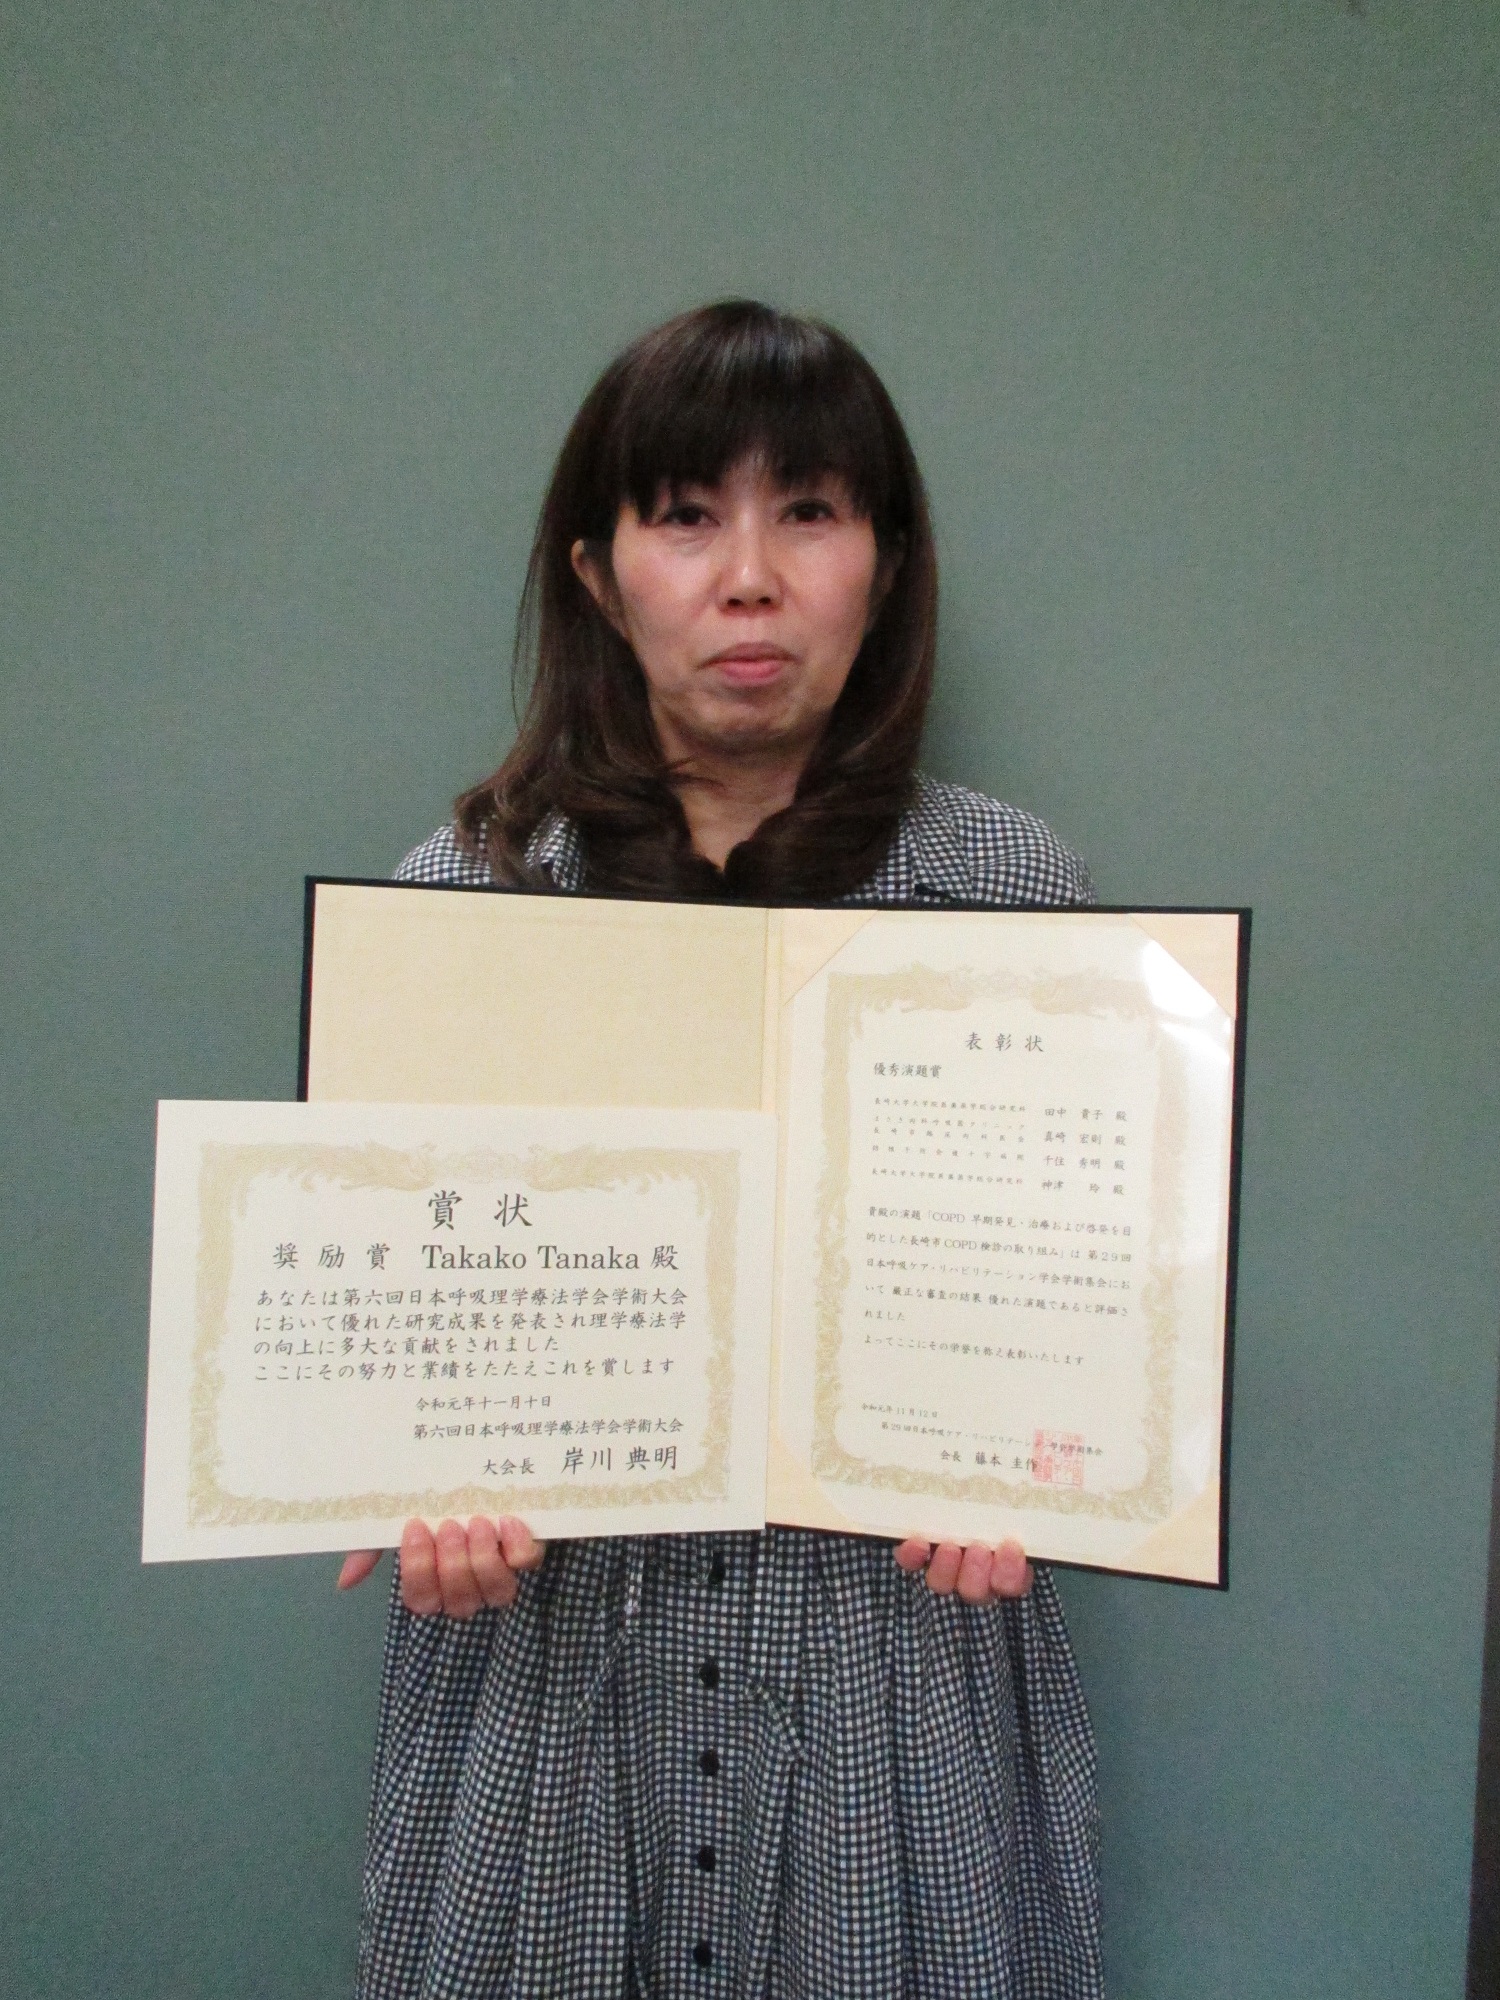 賞状
奨励賞 Takako Tanaka 殿
あなたは第六回日本呼吸理学療法学会学術大会
において優れた研究成果を発表され理学療法学
の向上に多大な貢献をされました
ここにその努力と業績をたたえこれを賞します
令和元年十一月十日
第六回日本呼吸理学療法学会学術大会
大会長 岸川 典明
表彰状
優秀演題賞
長崎大学大学院医歯薬学総合研究科 田中 貴子 殿
真崎 宏則 殿
千住 秀明 殿
長崎大学大学院医歯薬学総合研究科 神津 玲 殿
貴殿の演題「COPD 早期発見・治療および啓発を目
的とした長崎市COPD検診の取り組み」は 第29回
日本呼吸ケア・リハビリテーション学会学術集会にお
いて 厳正な審査の結果 優れた演題であると評価さ
れました
よってここにその栄誉を称え表彰いたします
令和元年11月12日
第29回日本呼吸ケア・リハビリテーション学会学術集会
会長 藤本 圭作